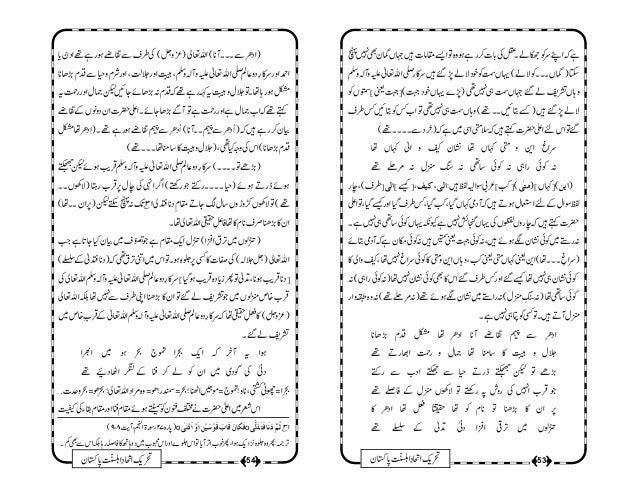 ہے کہ اپنے سر کو جھکا لے۔ عقل کی بات کر رہے ہو وہ تو ایسے مقامات ہیں جہاں گمان بھی نہیں پہنچ
سکتا (گماں۔۔۔ کو لالے) یہاں سمت کو خود لالے پڑ گئے ہیں سرکار صلی اللہ تعالیٰ علیہ وآلہ وسلم
وہاں تشریف لے گئے جہاں سمت ہی نہیں تھی (پڑے یہاں خود جہت) [جہت یعنی] سمتوں کو
لالے پڑ گئے ہیں (کسے بتائیں۔۔ تھے) وہاں سمت ہی نہیں تھی تو اب کس کو بتائیں کس طرف
گئے تو اس لئے اعلیٰ حضرت کہتے ہیں کہ سلامتی اسی میں ہے کہ (خرد سے۔۔۔۔ تھے)
سراغ این و متی کہاں تھا نشان کیف و الی کہاں تھا
نہ کوئی راہی نہ کوئی ساتھی نہ سنگ منزل نہ مرحلے تھے
(این) [کہاں] (متی) [کب] عربی سوالیہ لفظ ہیں الی، کیف، [کیسے] الی (طرف)، چار
لفظ سوال کے لئے استعمال ہوتے ہیں کہ آدمی کہاں گیا، کب گیا، کس طرف گیا اور کیسے گیا، تو اعلیٰ
حضرت کہتے ہیں کہ چاروں لفظوں کی یہاں گنجائش نہیں ہے کیونکہ یہاں کوئی ساتھی ہی نہیں ہے۔
نہ رستے میں کوئی نشان لگے ہوئے ہیں، نہ کوئی جہت یعنی سمتیں ہیں نہ کوئی مکان ہے کہ آدمی بتائے
(سراغ۔۔۔ تھا) این یعنی کہاں متی یعنی کب وہاں این و متی کا کوئی سراغ نہیں تھا، کیف والی کا
کوئی نشان ہی نہیں تھا کیسے گئے اور کس طرف گئے اس کا بھی کوئی نشان نہیں تھا (نہ کوئی راہی) نہ
کوئی ساتھی تھا (نہ سنگ منزل) نہ راستے میں نشان لگے ہوئے تھے (نہ مرحلے تھے) نہ وہ طبقہ وار
منزل آتے ہیں۔ تو کسی کو پتا ہی نہیں ہے۔
ادھر سے پیہم تقاضے آنا ادھر تھا مشکل قدم بڑھانا
جلال و ہیبت کا سامنا تھا جمال و رحمت ابھارتے تھے
بڑھے تو لیکن جھجکتے ڈرتے حیا سے جھکتے ادب سے رکتے
جو قرب انہیں کی روش پہ رکھتے تو لاکھوں منزل کے فاصلے تھے
پر ان کا بڑھنا تو نام کو تھا حقیقتاً فعل تھا ادھر کا
تنزلوں میں ترقی افزا دنیٰ تدلیٰ کے سلسلے تھے
تحریک اتحاد اہلسنت پاکستان
53
(ادھر سے۔۔۔ آنا) اللہ تعالیٰ (عزوجل) کی طرف سے تقاضے ہو رہے تھے ادن یا
احمد اور سرکار دو عالم صلی اللہ تعالیٰ علیہ وآلہ وسلم، ہیبت اور جلالت، اور شرم و حیا سے قدم بڑھانا
مشکل ہو رہا تھا، تو جلال و ہیبت یہ کہہ رہے تھے کہ قدم نہ بڑھائے جائیں لیکن جمال اور رحمت یہ
کہتے تھے کہ اب جمال ہے اور رحمت ہے تو آگے بڑھا جائے۔ اعلیٰ حضرت ان دونوں کے تقاضے
بیان کر رہے ہیں کہ (اُدھر سے پیہم۔۔ آنا) اُدھر سے تقاضے ہو رہے تھے۔ (ادھر تھا مشکل
قدم بڑھانا) اس کی وجہ کیا تھی، (جلال و ہیبت کا سامنا تھا۔۔۔ تھے)
(بڑھے تو۔۔۔۔) سرکار دو عالم صلی اللہ تعالیٰ علیہ وآلہ وسلم قریب ہوئے لیکن جھجکتے
ہوئے ڈرتے ہوئے (حیا۔۔۔۔ رکتے) (جو رکھتے) اگر انہی کی چال پر قرب رہتا (لاکھوں۔۔
تھے) تو لاکھوں کروڑوں سال لگ جاتے مقامِ دنا فتدلیٰ ۱؎ تک نہ پہنچ سکتے لیکن (پر ان۔۔ تھا)
ان کا بڑھنا صرف نام کا تھا فاعل حقیقی اللہ تعالیٰ تھا۔
(تنزلوں میں ترقی افزا) تنزل ایک مقام ہے جو تصوف میں بیان کیا جاتا ہے جب
اللہ تعالیٰ (جل جلالہ) کی صفات کا کسی پر جلوہ ہو۔ تو اس میں اتنی ترقی تھی کہ (دنا فتدلیٰ کے سلسلے)
[دنا قریب ہونا، تدلیٰ تو پھر زیادہ قریب ہو گیا] سرکار دو عالم صلی اللہ تعالیٰ علیہ وآلہ وسلم اللہ تعالیٰ کی
قرب خاص منزلوں میں جو تشریف لے گئے تو ان کا بڑھنا اپنی طرف سے نہیں تھا بلکہ اللہ تعالیٰ
(عزوجل) کا فعل حقیقی تھا کہ سرکار دو عالم صلی اللہ تعالیٰ علیہ وآلہ وسلم اللہ تعالیٰ کے قرب خاص میں
تشریف لے گئے۔
ہوا یہ آخر کہ ایک بجرا تموج بحر ہو میں ابھرا
دنیٰ کی گودی میں ان کو لے کر فنا کے لنگر اٹھا دیے تھے
بجرا = چھوٹی کشتی، ناؤ، تموج = موجیں اٹھنا، بحر = سمندر، ھو = وہ مراد اللہ تعالیٰ، بحر ھو = بحر وحدت۔
اس شعر میں اعلیٰ حضرت نے مختلف فنون کو سمیٹتے ہوئے مقام فنا اور مقام بقا کی کیفیت
۱؎ ثُمَّ دَنَا فَتَدَلّٰی o فَکَانَ قَابَ قَوْسَیْنِ اَوْ اَدْنٰی o (پارہ ۲۷ سورۃ النجم آیت ۹،۸)
ترجمہ: پھر وہ جلوہ نزدیک ہوا، پھر خوب اتر آیا تو اس جلوے اور اس محبوب میں دو ہاتھ کا فاصلہ رہا بلکہ اس سے بھی کم۔
تحریک اتحاد اہلسنت پاکستان
54